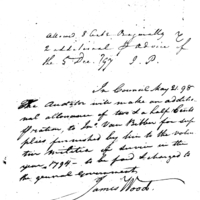 Allowed 3 Cents Originally &
2 additional p Advice of
the 5 Dec. 97 J. P.
In Council May 21. 98
The Auditor will make an additio
nal allowance of two & a half Cents
pr ration, to Mr Van Bibber for sup
plies furnished by him to the volun
teer militia in service in the
year 1794 — to be paid & charged to
the general Government.
James Wood